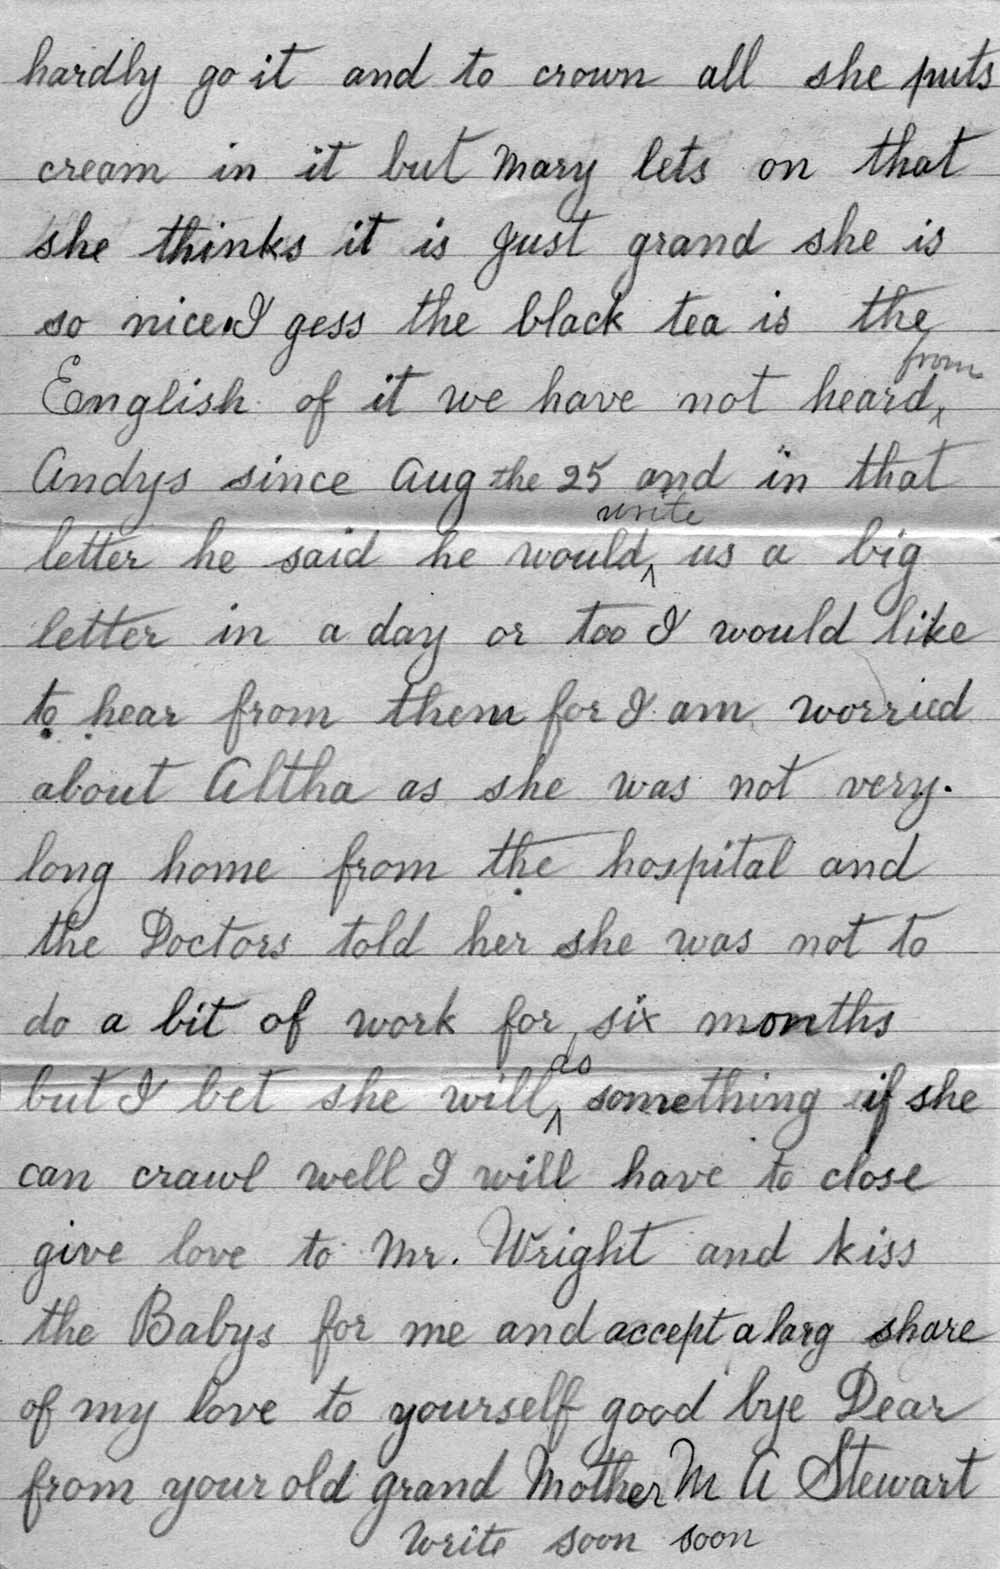 hardly go it and to crown all she puts
cream in it but Mary lets on that
she thinks it is Just grand she is
so nice. I gess the black tea is the
from
English of it we have not heard^
Andys since Aug the 25 and in that
write
letter he said he would^ us a big
letter in a day or too I would like
to hear from them for I am worried
about Altha as she was not very.
long home from the hospital and
the Doctors told her she was not to
do a bit of work for six months
do
but I bet she will^ something if she
can crawl well I will have to close
give love to Mr. Wright and kiss
the Babys for me and accept a larg share
of my love to yourself good bye Dear
from your old grand Mother M A Stewart
write soon soon